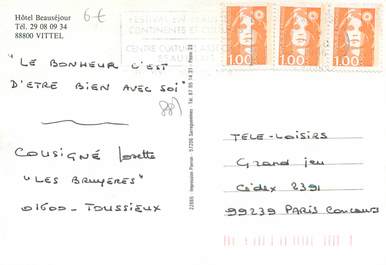 Hôtel Beauséjour
Tél. 29 08 09 34
88800 VITTEL
6€
CONTINENTS ET
CENTRE CULTUREL
1,00
1,00
1,00
"LE BONHEUR C'EST
D'ETRE BIEN AVEC SOI"
(88)
COUSIGNÉ Josette
"LES BRUYERES"
01600 - TOUSSIEUX
22665 - Impression Pierron - 57206 Sarreguemines - Tél. 87 95 14 31 - Poste 23
TELE-LOISIRS
Grand jeu
Cedex 2391
99239 PARIS CONCOURS